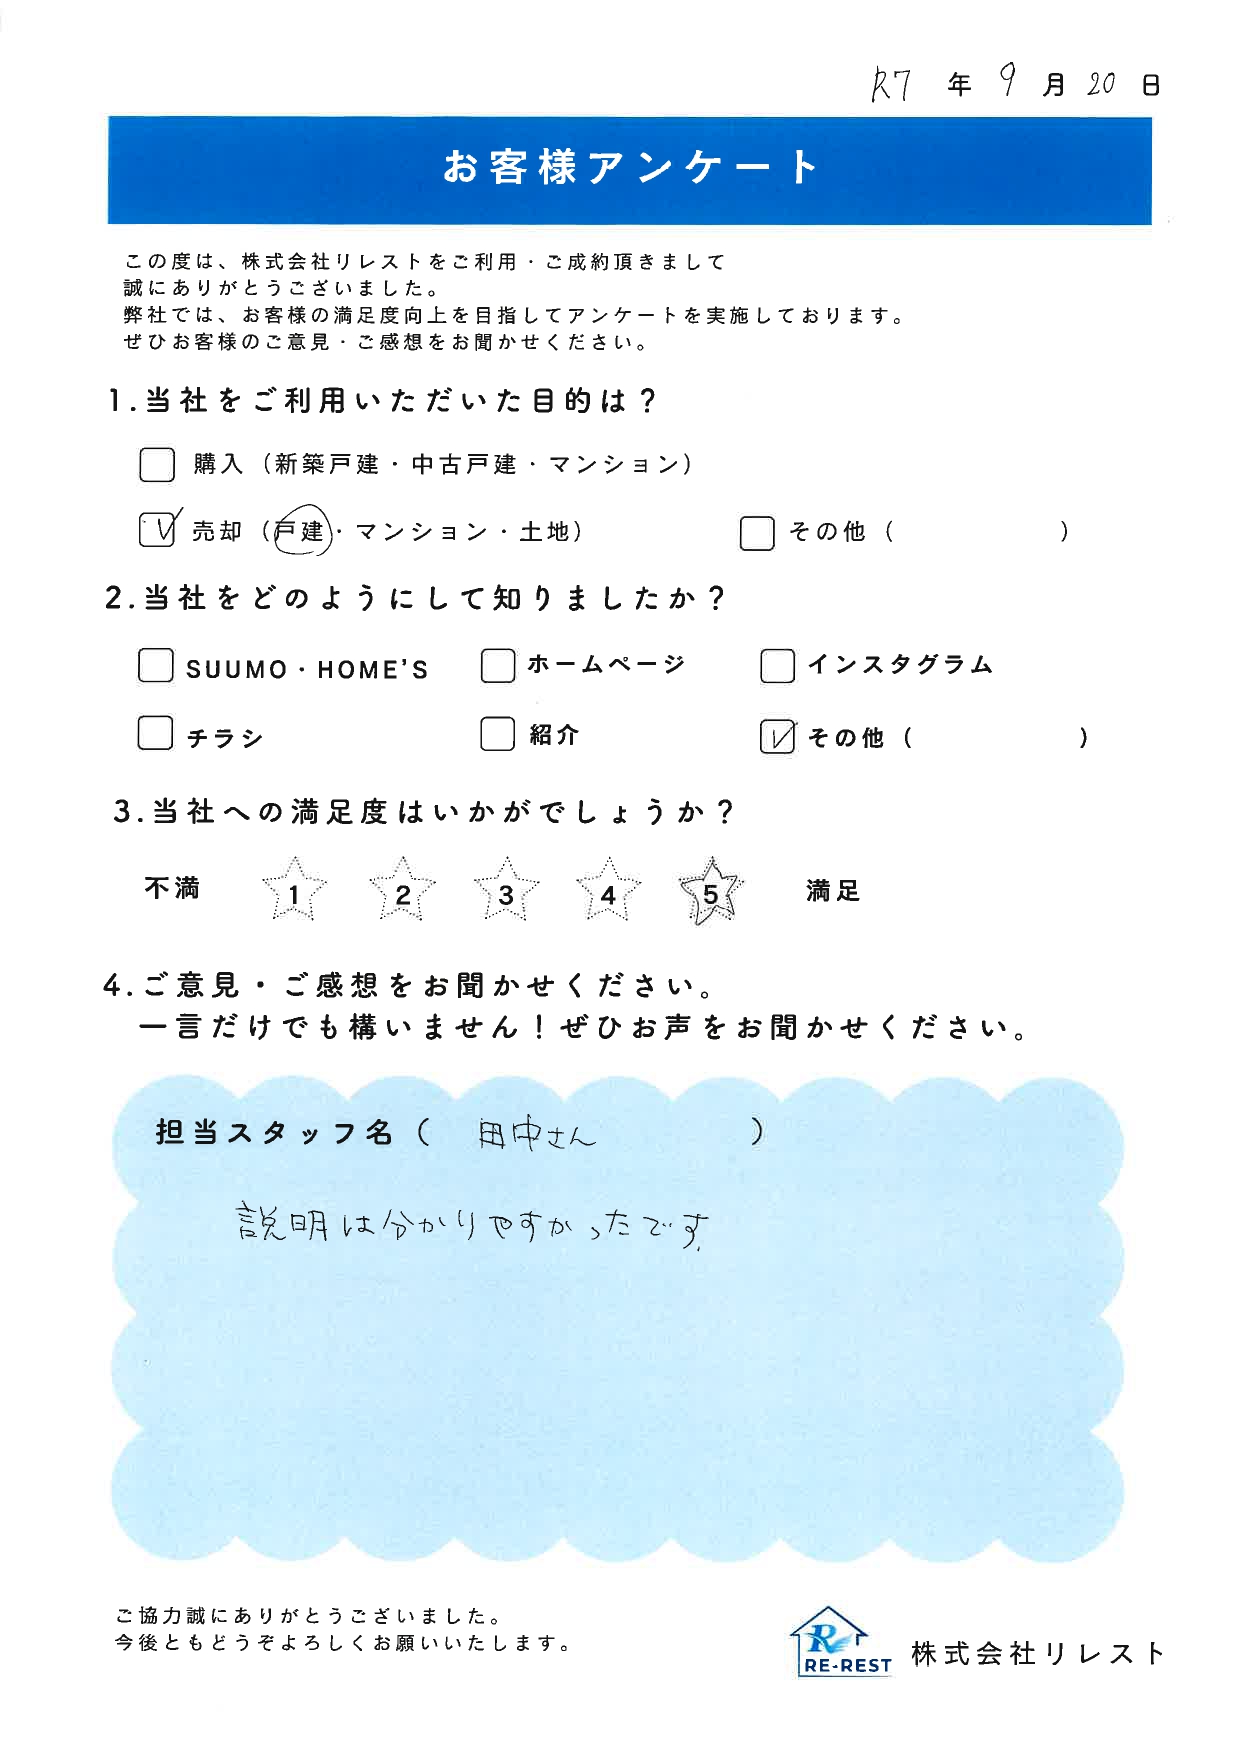 R7 年 9 月 20 日
お客様アンケート
この度は、株式会社リレストをご利用・ご成約頂きまして
誠にありがとうございました。
弊社では、お客様の満足度向上を目指してアンケートを実施しております。
ぜひお客様のご意見・ご感想をお聞かせください。
1.当社をご利用いただいた目的は？
購入（新築戸建・中古戸建・マンション）
売却（戸建・マンション・土地） その他（ ）
2.当社をどのようにして知りましたか？
SUUMO・HOME'S ホームページ インスタグラム
チラシ 紹介 その他（ ）
3.当社への満足度はいかがでしょうか？
不満 1 2 3 4 5 満足
4.ご意見・ご感想をお聞かせください。
一言だけでも構いません！ぜひお声をお聞かせください。
担当スタッフ名（ 田中さん ）
説明は分かりやすかったです
ご協力誠にありがとうございました。
今後ともどうぞよろしくお願いいたします。
R
RE-REST 株式会社リレスト